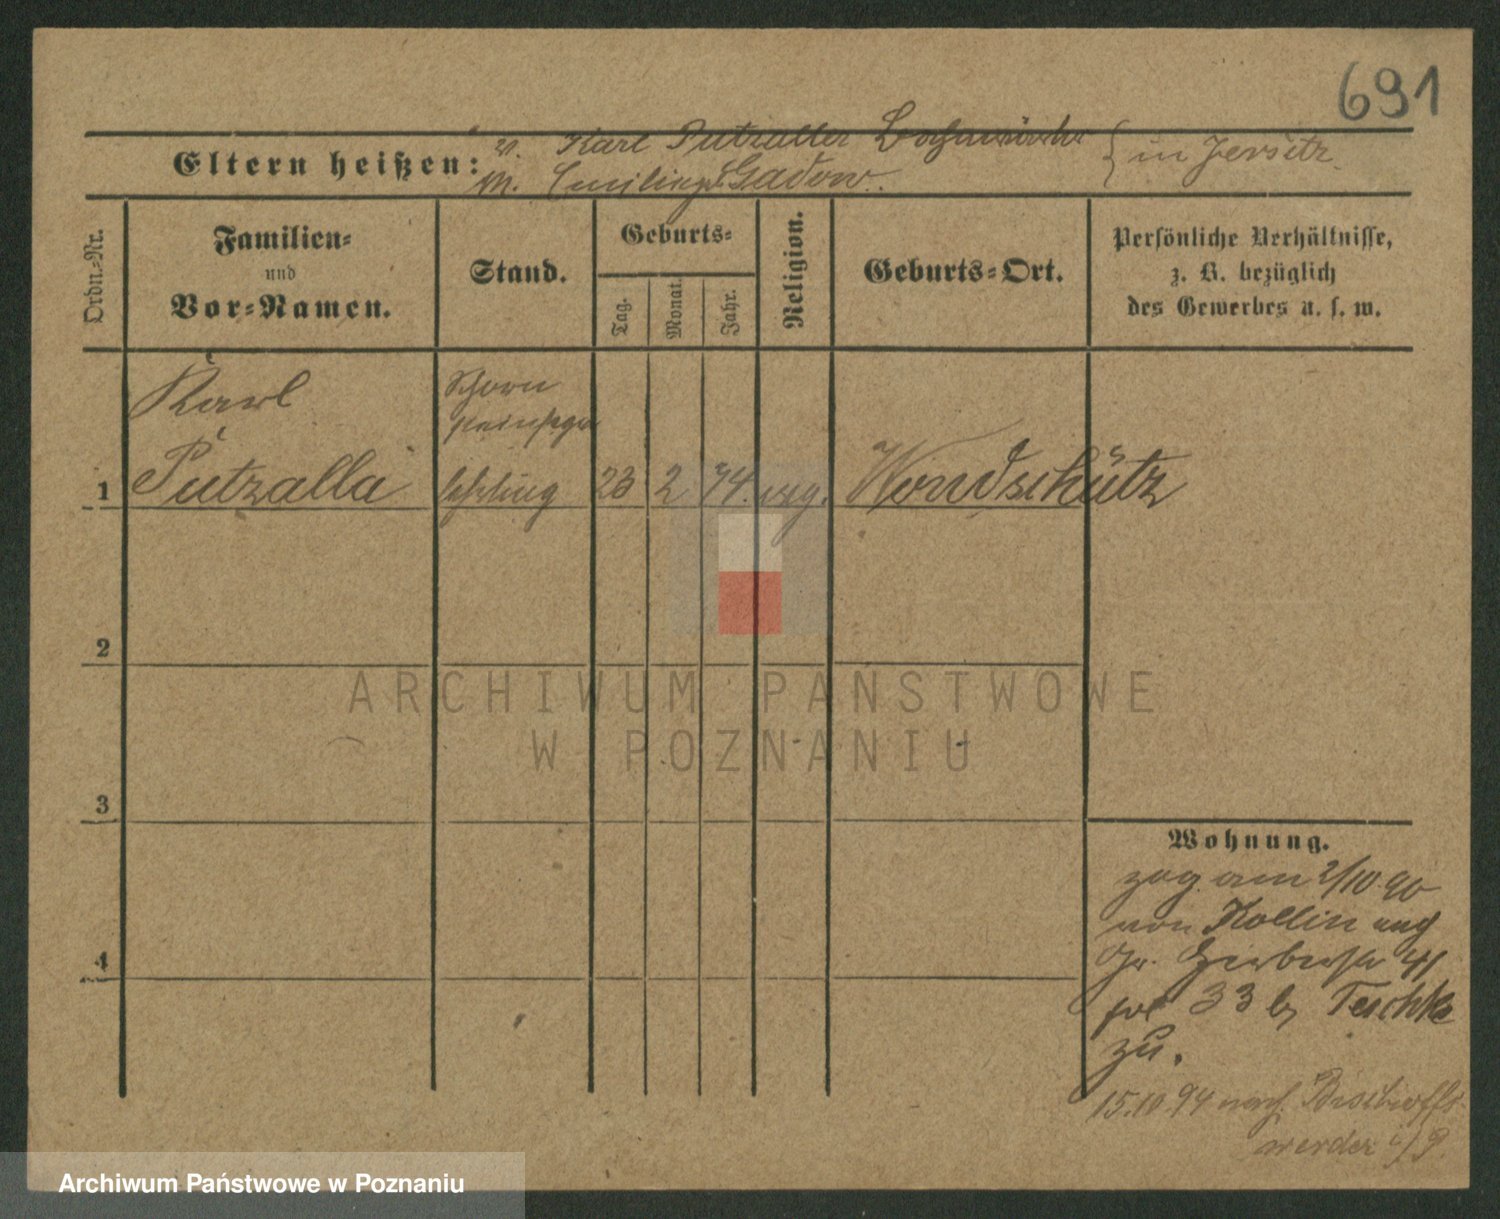 691
Eltern heißen:
v. Karl Putzaller
M. Emilie geb Gadow.
} in Jersitz
Ordn.-Nr.
Familien-
und
Vor-Namen.
Stand.
Geburts-
Tag.
Monat.
Jahr.
Religion.
Geburts-Ort.
Persönliche Verhältnisse,
z. B. bezüglich
des Gewerbes u. s. w.
Karl
Schorn
steinfeger
1 Putzalla lehrling 23 2 74. evg. Wondschütz
2
3
4
Wohnung.
zog am 2/10 90
von Kollin auf
Gr. Gerberstr 41
pol 33 b Teschke
zu.
15.10.94 nach Bischoffs
werder
ARCHIWUM PAŃSTWOWE
W POZNANIU
Archiwum Państwowe w Poznaniu